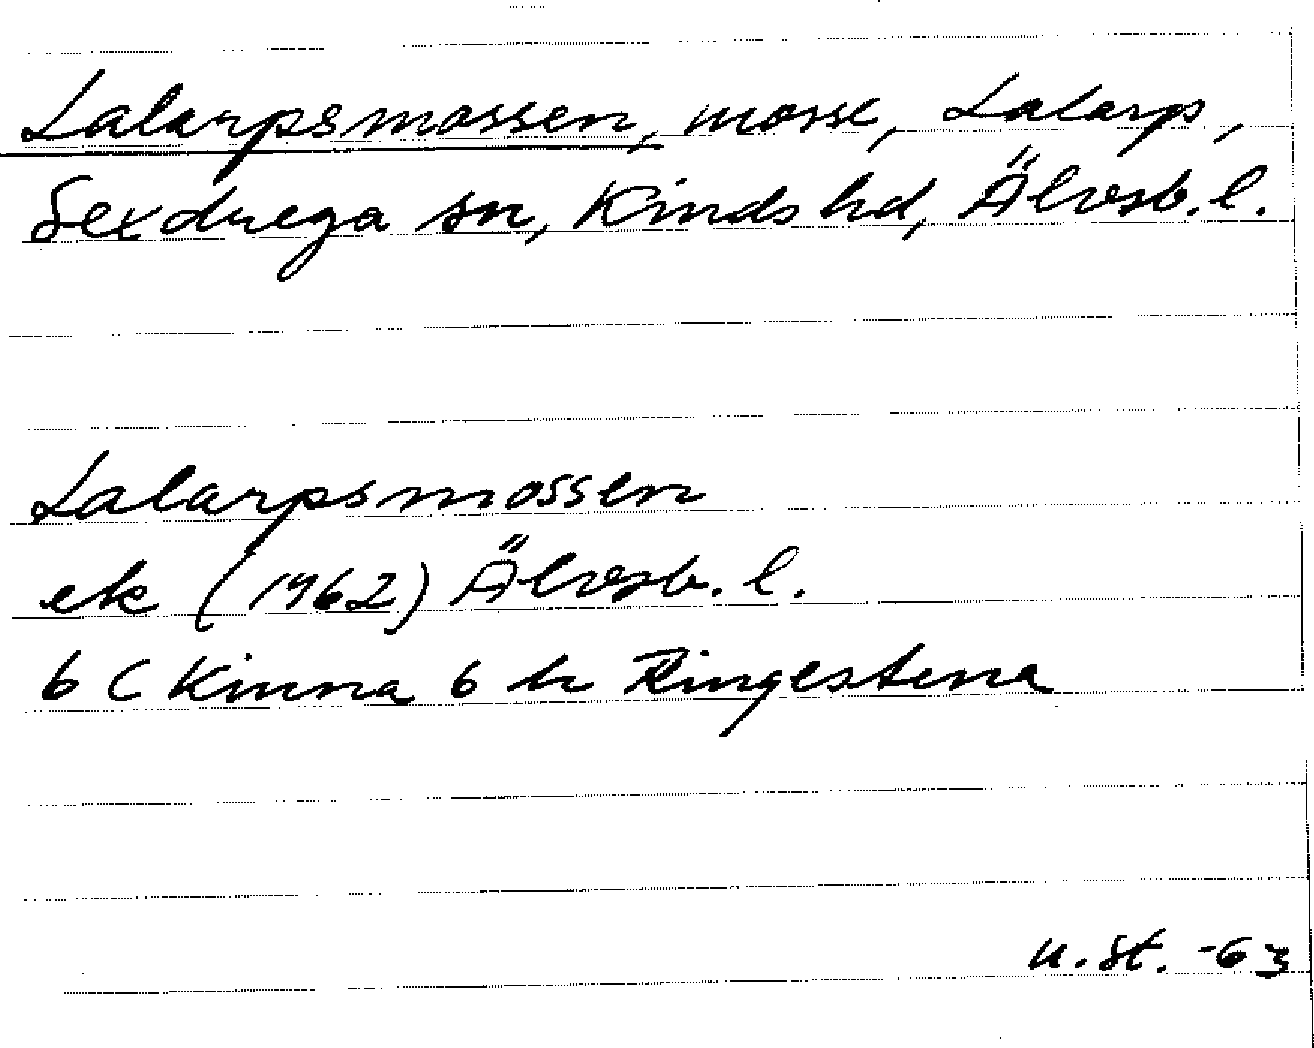 Lalarpsmossen, mosse, Lalarp,
Sexdrega sn, Kinds hd, Älvsb. l.
Lalarpsmossen
ek (1962) Älvsb. l.
6 C Kinna 6 h Ringestena
u. st. -63